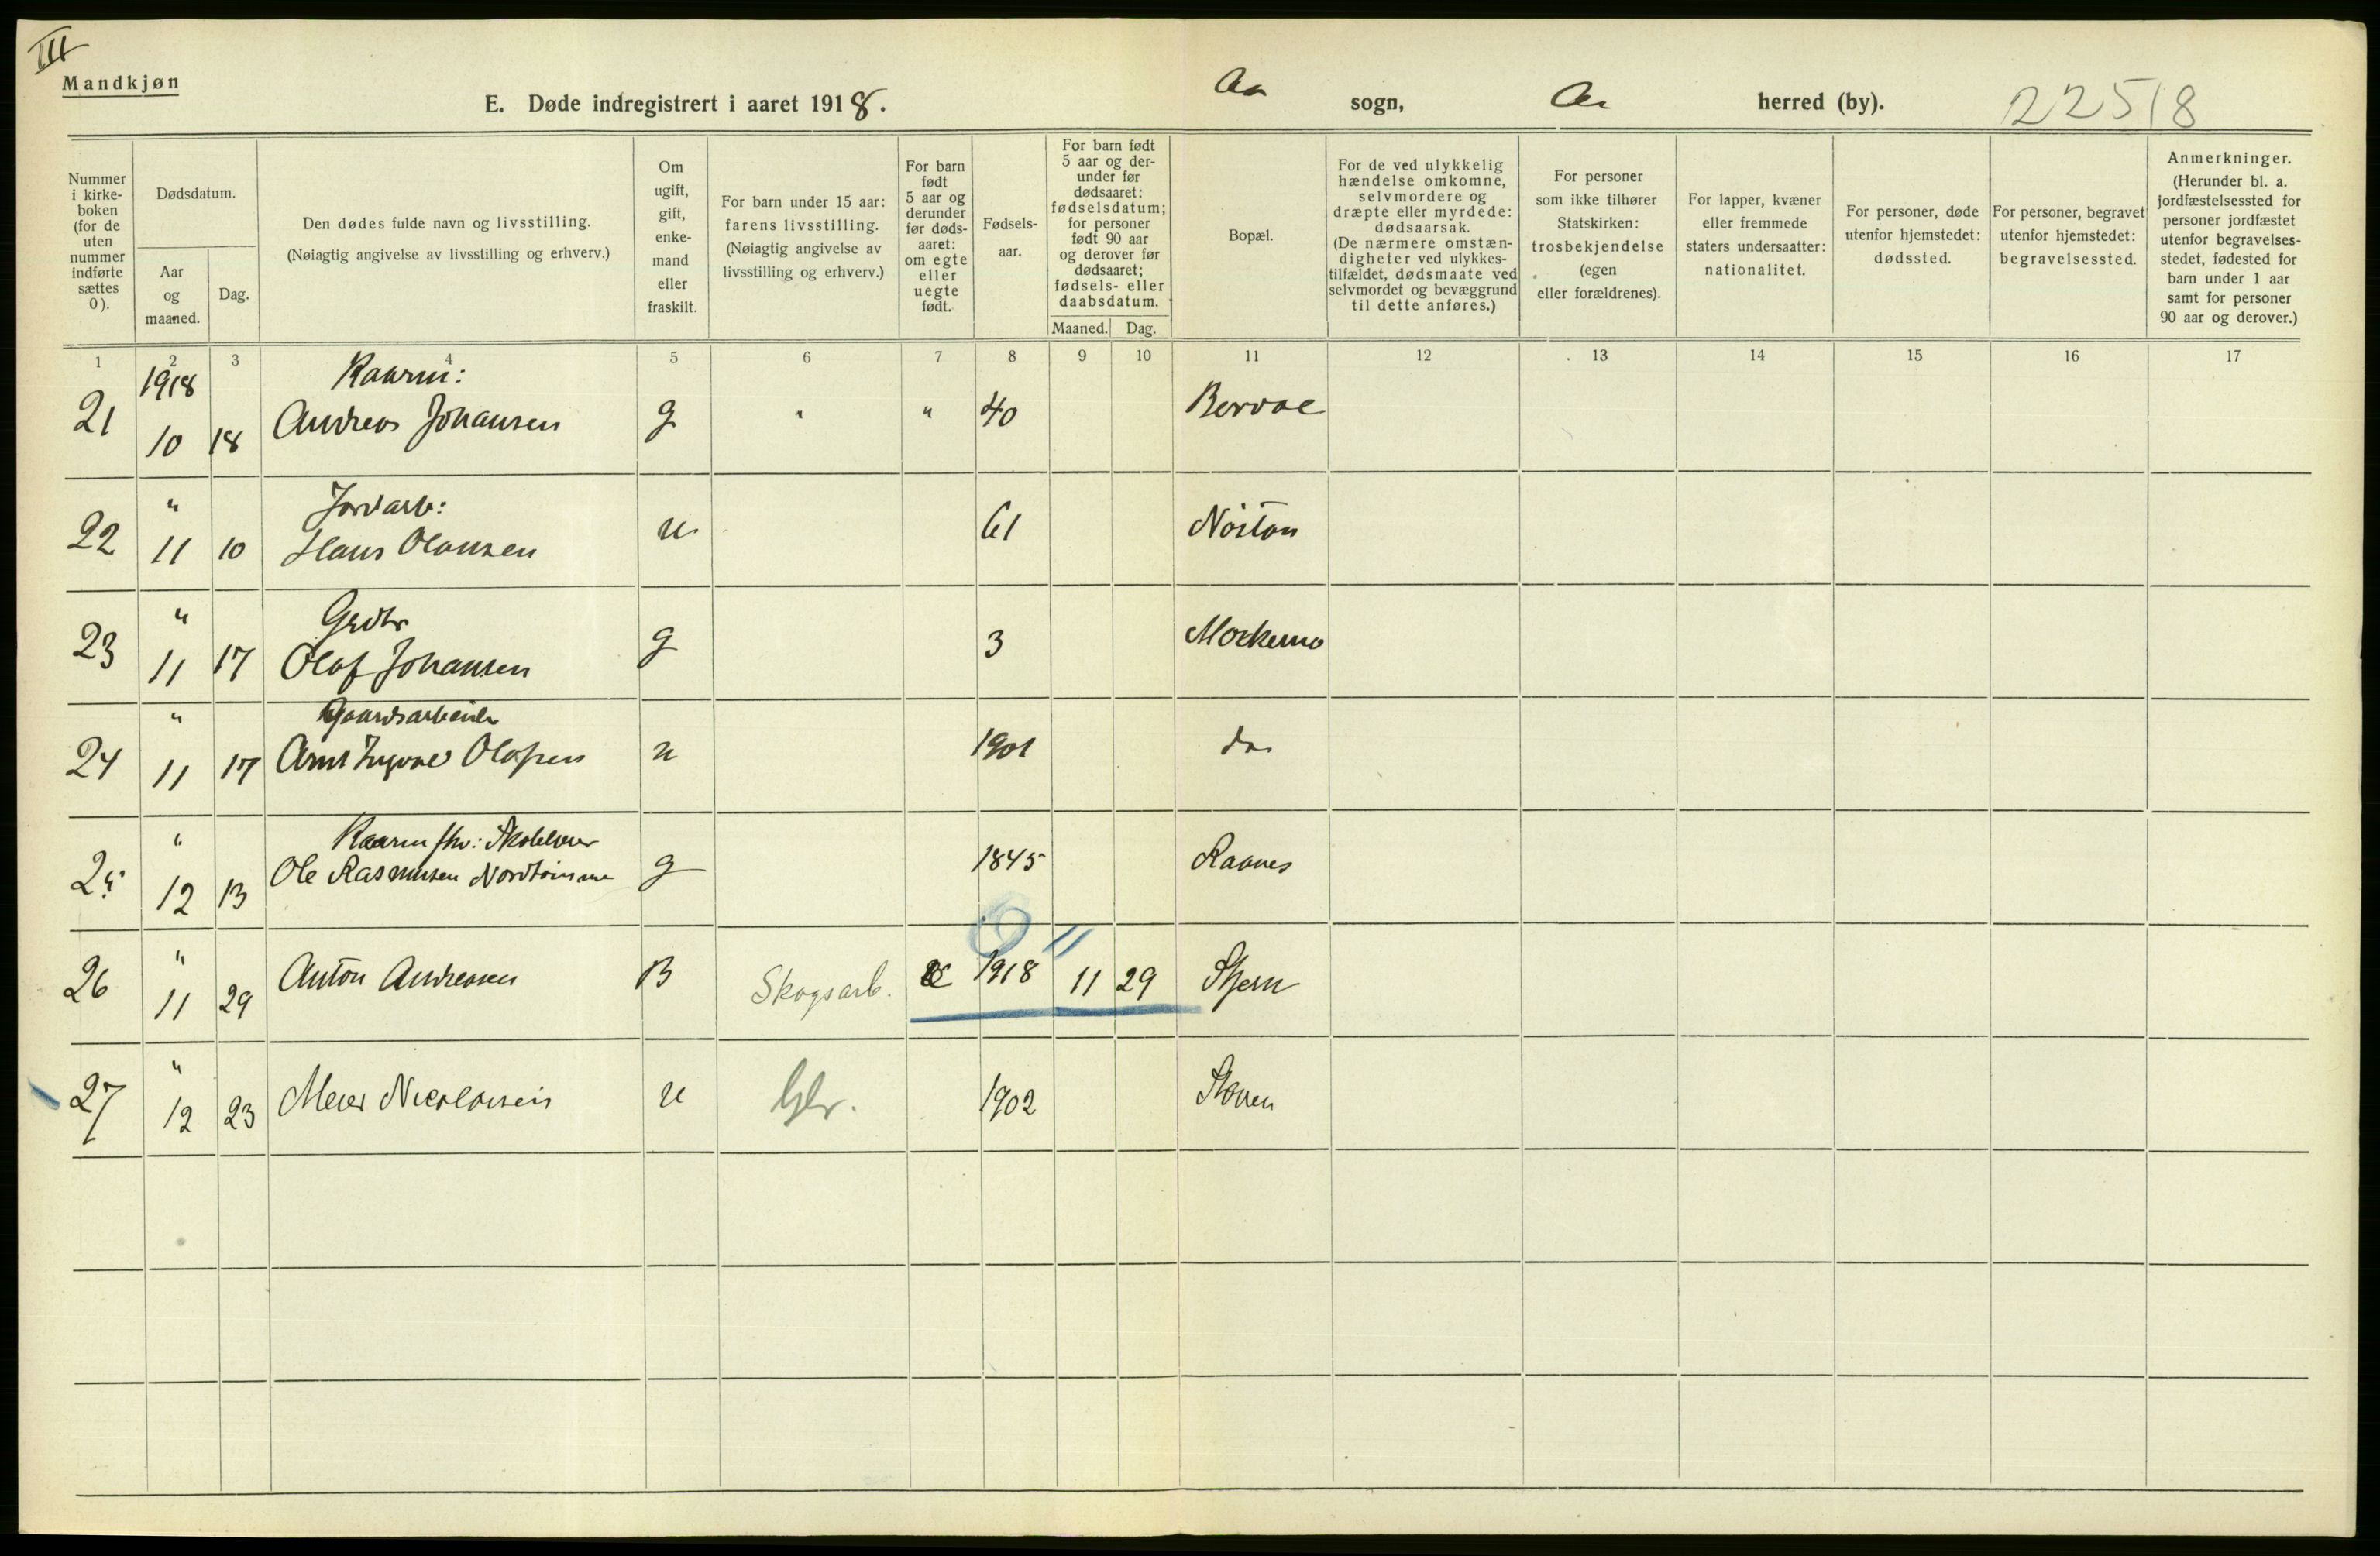 III
Mandkjøn
E. Døde indregistrert i aaret 1918.
Aa sogn, Aa herred (by).
22518
Nummer i kirke-boken (for de uten nummer indførte sættes 0).
Dødsdatum.
Aar og maaned.
Dag.
Den dødes fulde navn og livsstilling.
(Nøiagtig angivelse av livsstilling og erhverv.)
Om ugift, gift, enke-mand eller fraskilt.
For barn under 15 aar: farens livsstilling.
(Nøiagtig angivelse av livsstilling og erhverv.)
For barn født 5 aar og derunder før døds-aaret: om egte eller uegte født.
Fødsels-aar.
For barn født 5 aar og der-under før dødsaaret: fødselsdatum; for personer født 90 aar og derover før dødsaaret; fødsels- eller daabsdatum.
Maaned. Dag.
Bopæl.
For de ved ulykkelig hændelse omkomne, selvmordere og dræpte eller myrdede: dødsaarsak.
(De nærmere omstæn-digheter ved ulykkes-tilfældet, dødsmaate ved selvmordet og bevæggrund til dette anføres.)
For personer som ikke tilhører Statskirken: trosbekjendelse (egen eller forældrenes).
For lapper, kvæner eller fremmede staters undersaatter: nationalitet.
For personer, døde utenfor hjemstedet: dødssted.
For personer, begravet utenfor hjemstedet: begravelsessted.
Anmerkninger.
(Herunder bl. a. jordfæstelsessted for personer jordfæstet utenfor begravelses-stedet, fødested for barn under 1 aar samt for personer 90 aar og derover.)
1 2 3 4 5 6 7 8 9 10 11 12 13 14 15 16 17
1918 Kaarm:
21 10 18 Andreas Johansen g " " 40
" Jordarb:
22 11 10 Hans Olausen u 61
" Grdbr
23 11 17 Olof Johansen g 3
" Gaardsarbeider
24 11 17 Arnt Ingval Olofsen u 1901 do
" Kaarm fhv: Skolelærer
25 12 13 Ole Rasmusen g 1845 Raanes
"
26 11 29 Anton Andreasen B Skogsarb. 1918 11 29 Stjern
"
27 12 23 Meier Nicolaisen u Gbr. 1902